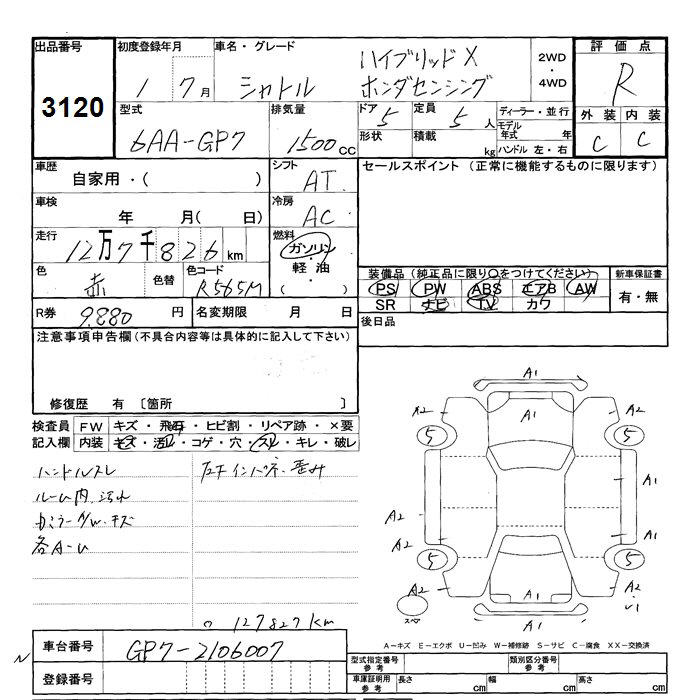 出品番号 初度登録年月 車名・グレード 評価点
3120 1 7月 シャトル ハイブリッドX ホンダセンシング 2WD・4WD R
型式 排気量 ドア 定員 ディーラー・並行 外装 内装
6AA-GP7 1500cc 5 5人 モデル年式 年 C C
形状 積載 kg ハンドル 左・右
車歴 シフト セールスポイント (正常に機能するものに限ります)
自家用・( ) AT
車検 冷房
年 月( 日) AC
走行 燃料
12万7千826km ガソリン・軽油( )
色 色替 色コード 装備品(純正品に限り〇をつけてください) 新車保証書
赤 R565M PS PW ABS エアB AW 有・無
SR ナビ TV カワ
R券 9880円 名変期限 月 日 後日品
注意事項申告欄(不具合内容等は具体的に記入して下さい)
修復歴 有 〔箇所 〕
検査員記入欄 FW キズ・飛石・ヒビ割・リペア跡・×要
内装 キズ・汚レ・コゲ・穴・スレ・キレ・破レ
ハンドルスレ
ルーム内汚れ
各A-U
127827km
A1
A2 A1 A2
5 5
A1
A2
A2 A1
5 5
A2 A2
A1
スペア
A−キズ E−エクボ U−凹み W−補修跡 S−サビ C−腐食 XX−交換済
N 車台番号 GP7-2106007
型式指定番号 参考 類別区分番号 参考
登録番号
車庫証明用 参考 長さ cm 幅 cm 高さ cm